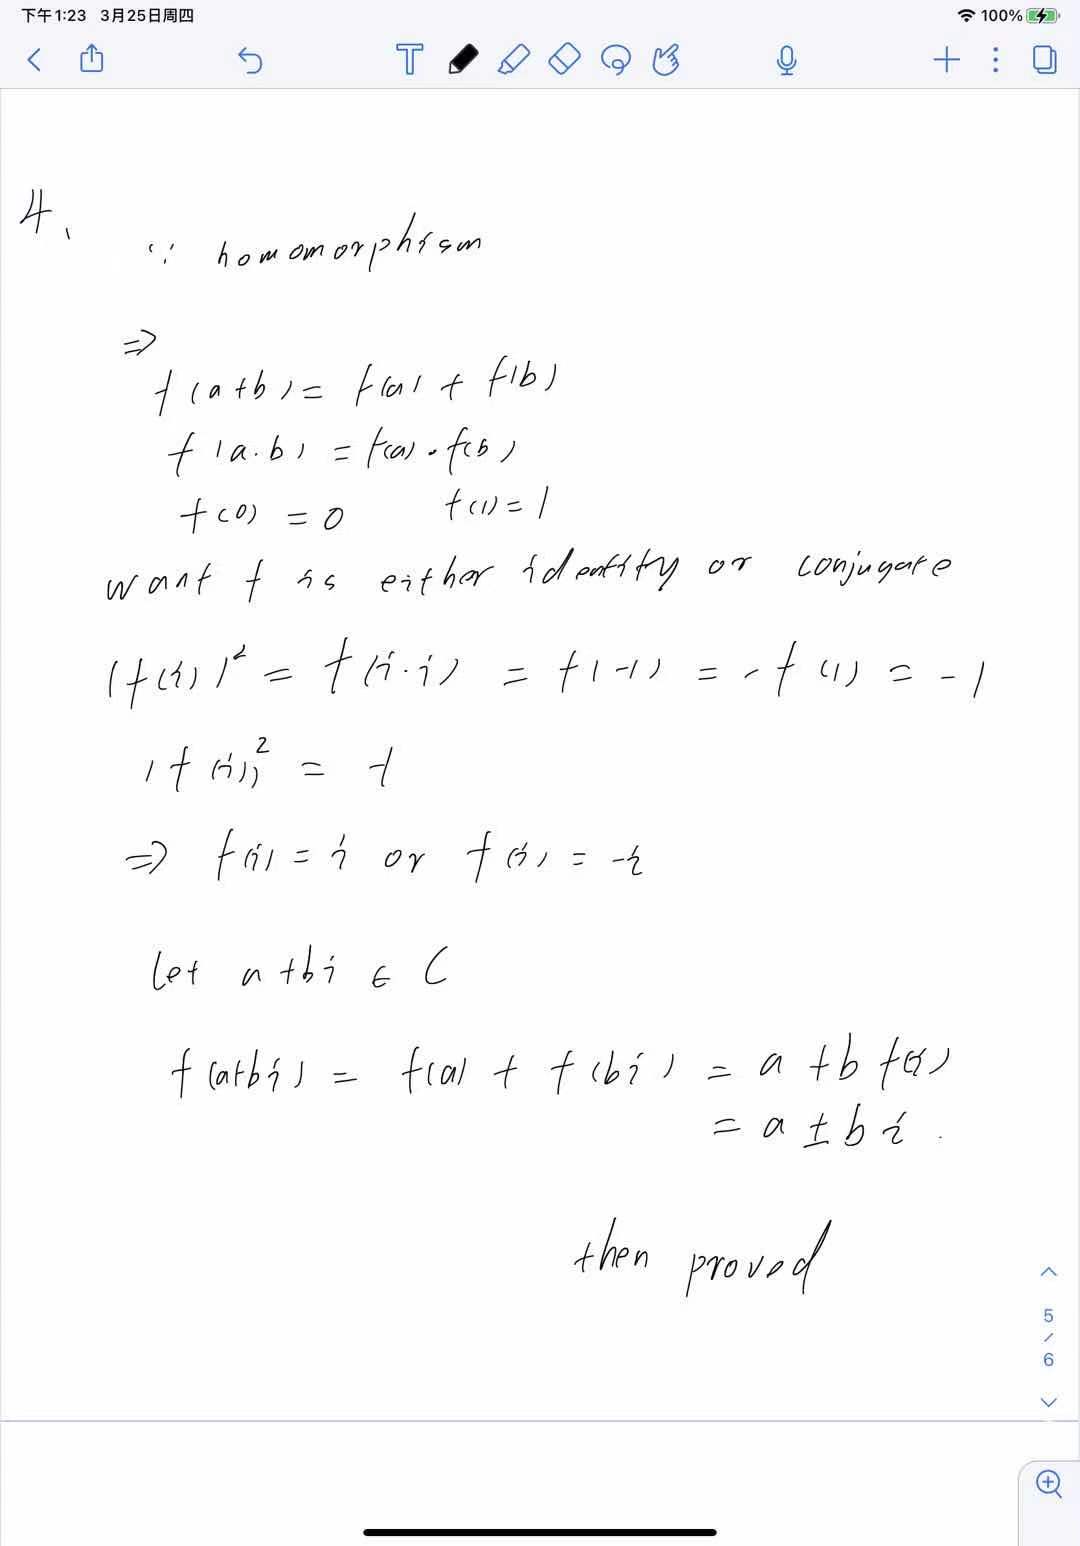 下午1:23 3月25日周四
100%
T
4.
∵ homomorphism
⇒
f(a+b) = f(a) + f(b)
f(a·b) = f(a)·f(b)
f(0) = 0 f(1) = 1
want f is either identity or conjugate
(f(i))² = f(i·i) = f(-1) = -f(1) = -1
(f(i))² = -1
⇒ f(i) = i or f(i) = -i
let a+bi ∈ C
f(a+bi) = f(a) + f(bi) = a + b f(i)
= a ± bi.
then proved
5
/
6